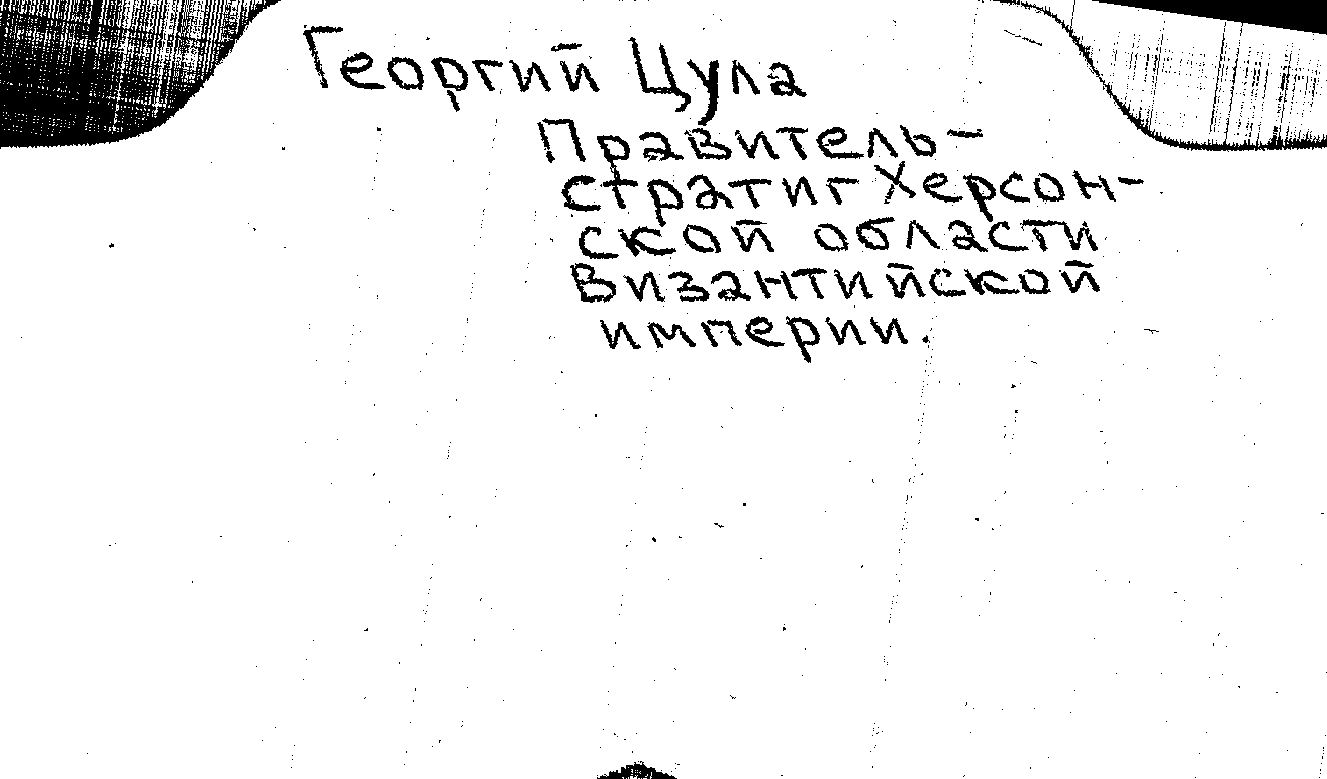 Георгий Цула
Правитель-
стратиг Херсон-
ской области
Византийской
империи.